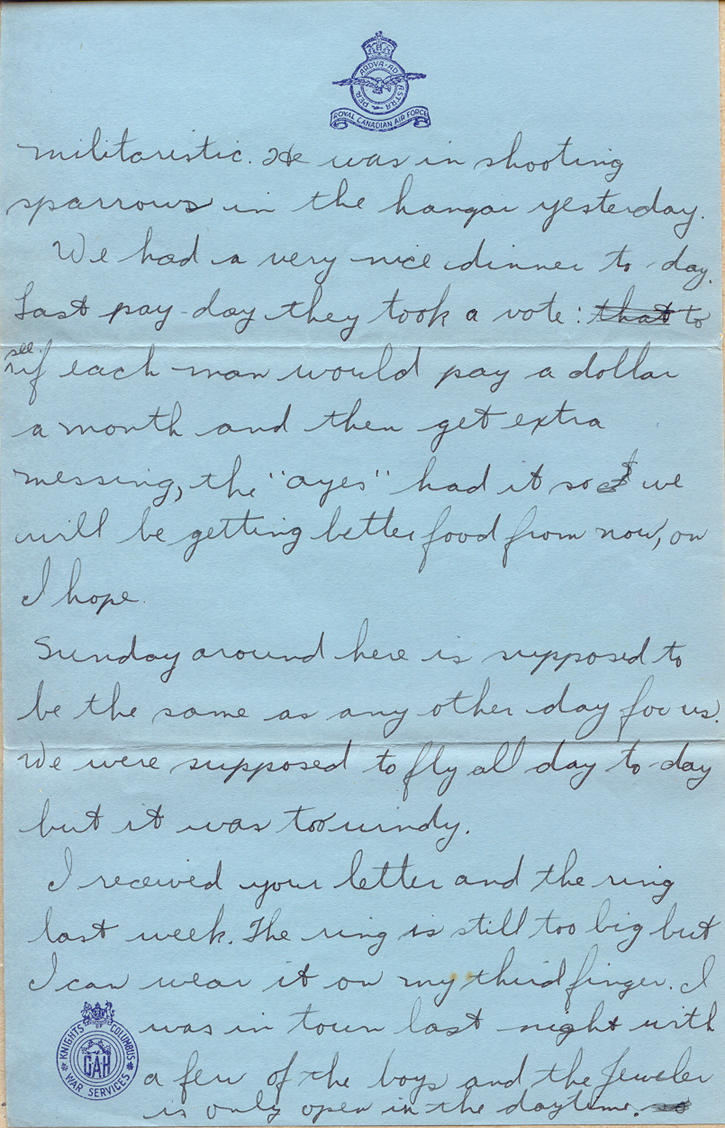 PER ARDVA AD ASTRA
ROYAL CANADIAN AIR FORCE
militaristic. He was in shooting
sparrows in the hangar yesterday.
We had a very nice dinner to-day.
Last pay-day they took a vote: that to
see
if each man would pay a dollar
a month and then get extra
messing, the "ayes" had it so I we
will be getting better food from now, on
I hope.
Sunday around here is supposed to
be the same as any other day for us.
We were supposed to fly all day to-day
but it was too windy.
I received your letter and the ring
last week. The ring is still too big but
I can wear it on my third finger. I
was in town last night with
a few of the boys and the Jeweler
is only open in the daytime.
KNIGHTS OF COLUMBUS
WAR SERVICES